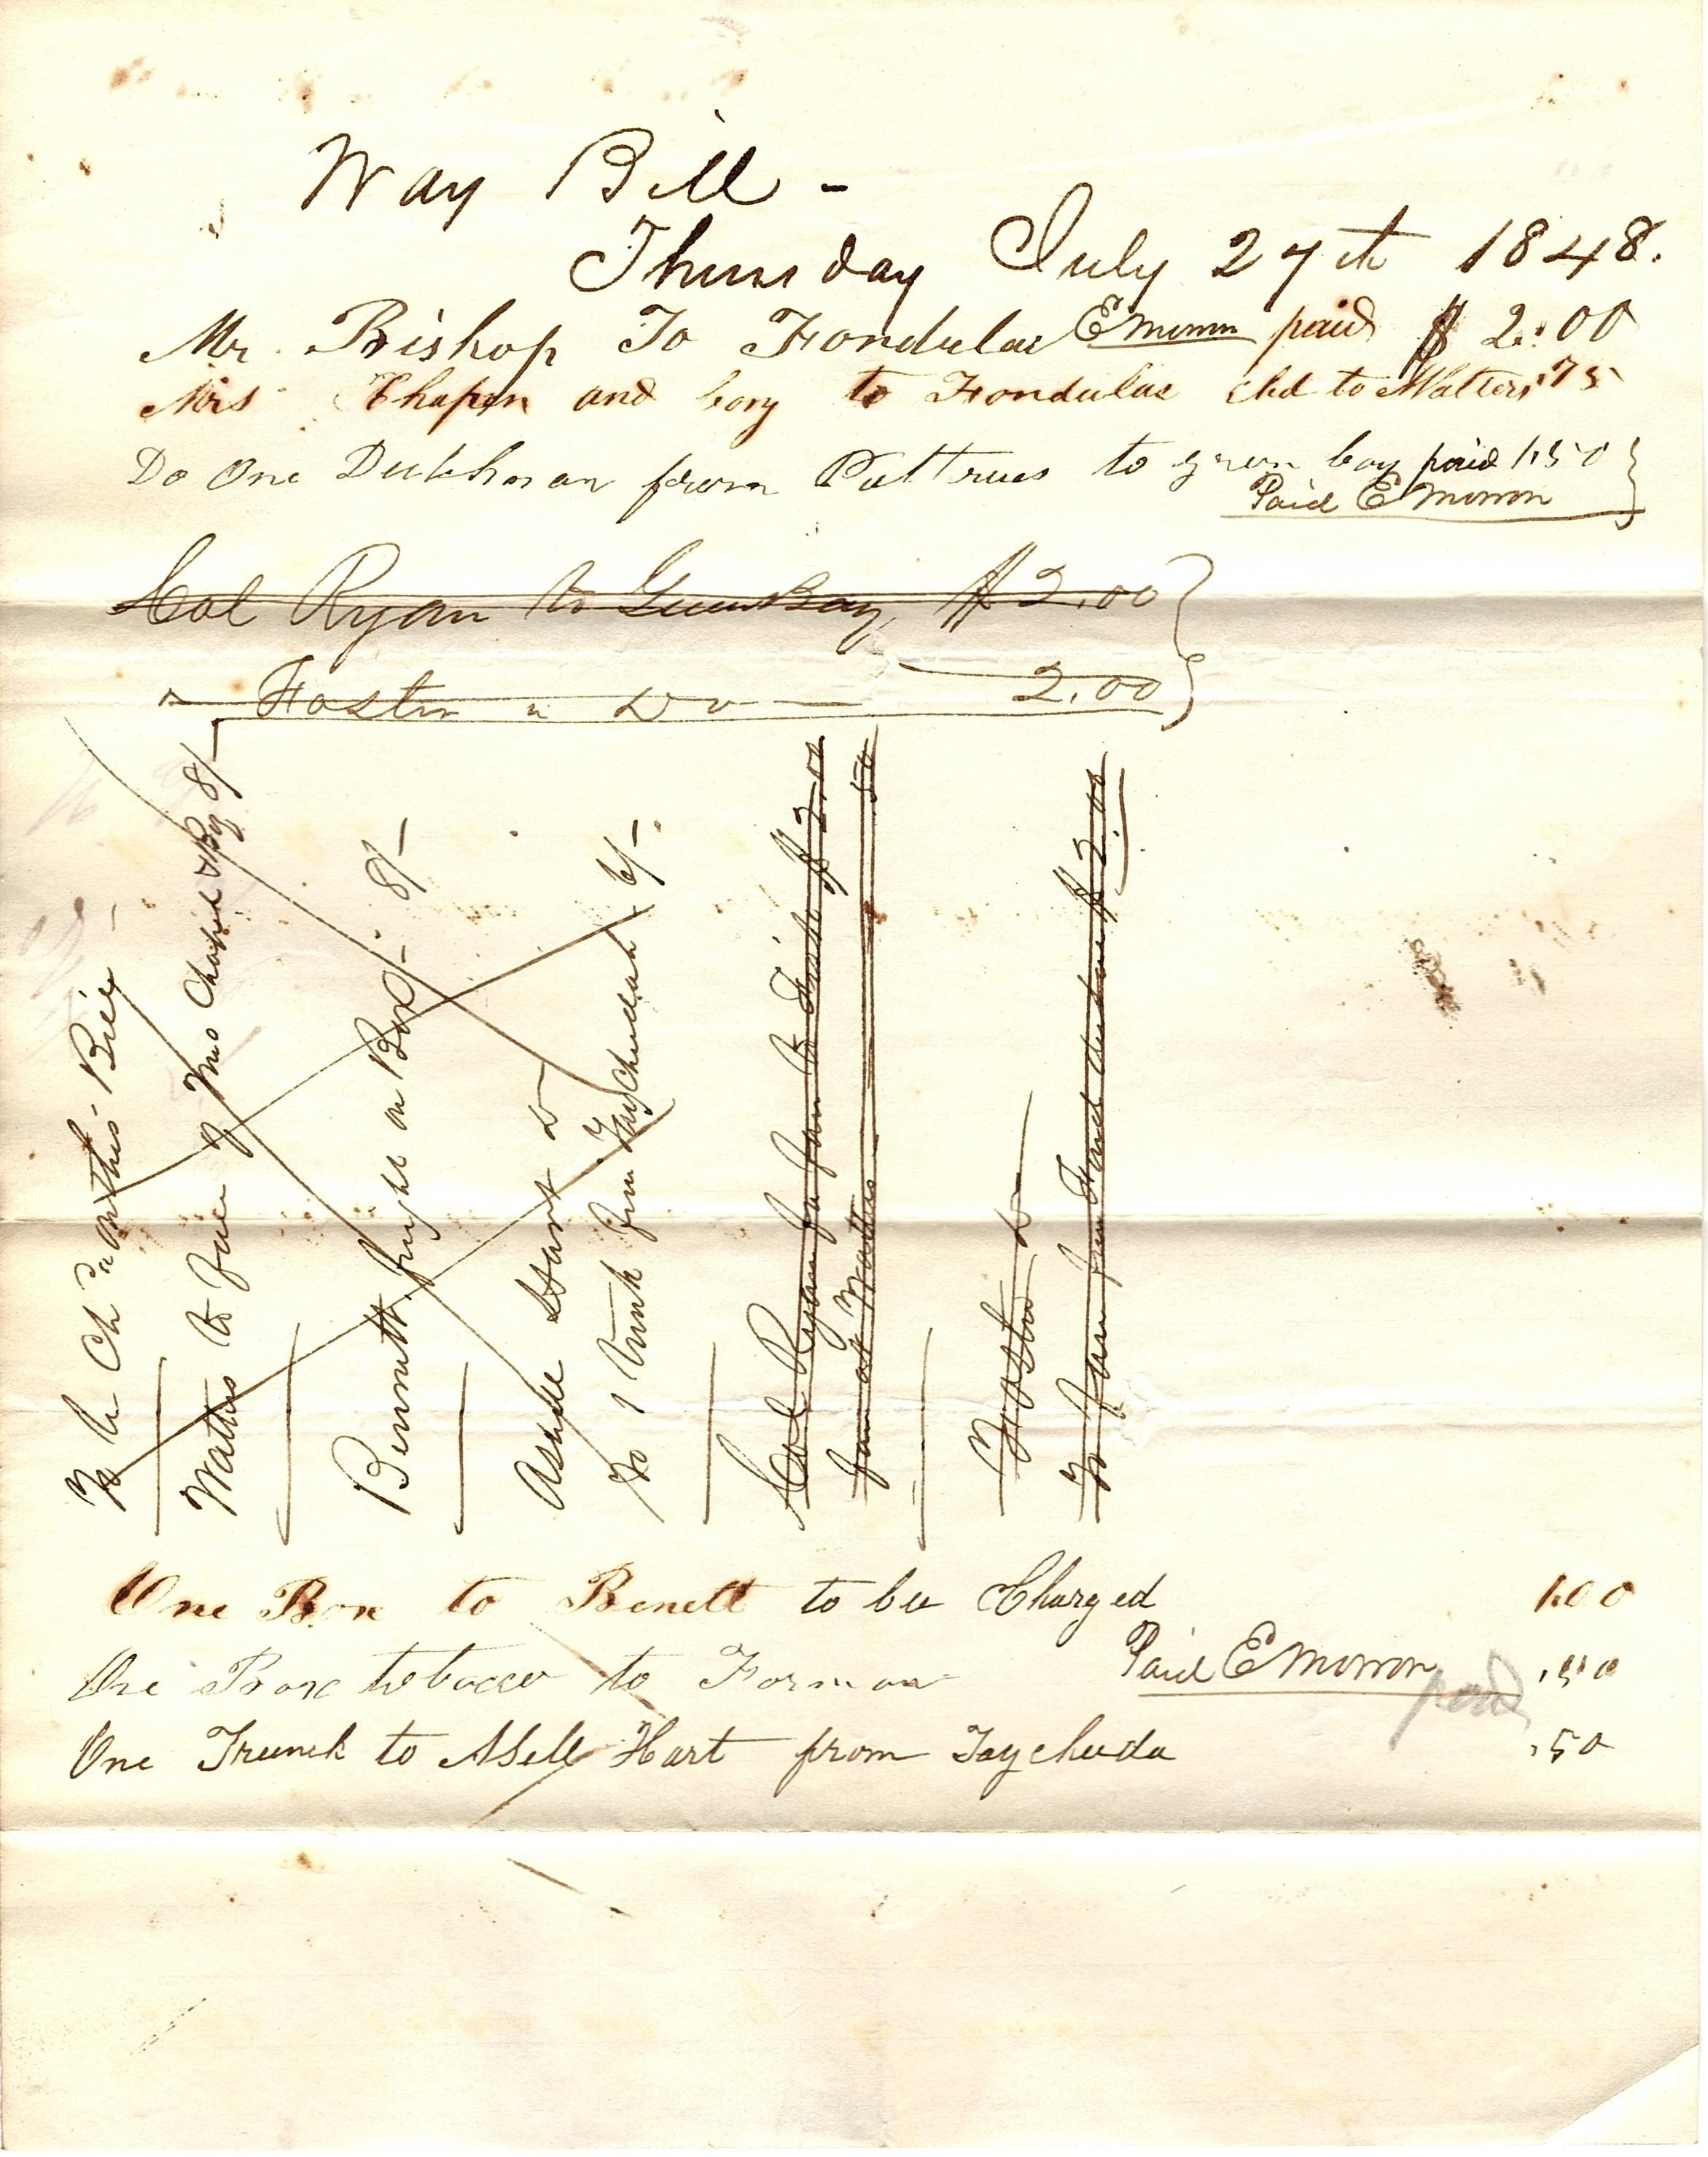 Way Bill -
Thursday July 27th 1848.
Mr Bishop To Fondulac E Morron paid $ 2.00
Mrs Chapin and boy to Fondulac chd to Watters .75
Do One Dutchman from Pettrues to green bay paid 1.50
Paid E Morron
Col Ryan to Green Bay $ 2.00
" Foster " Do — 2.00
To be Chd on this Bill -
Watters to fare of Mrs Chapin & Boy 8/-
Bennett freight on Box - 8/-
Asell Hart Dr
To 1 trunk from Taycheedah - 6/-
Col Ryan fare from to $ 2.00
from at Watters 50
Foster Dr
To fare from Fond du lac $ 2.00
One Box to Benett to be Charged 1.00
One Box tobacco to Forman Paid E Morron paid .50
One Trunck to Asell Hart from Taycheeda .50